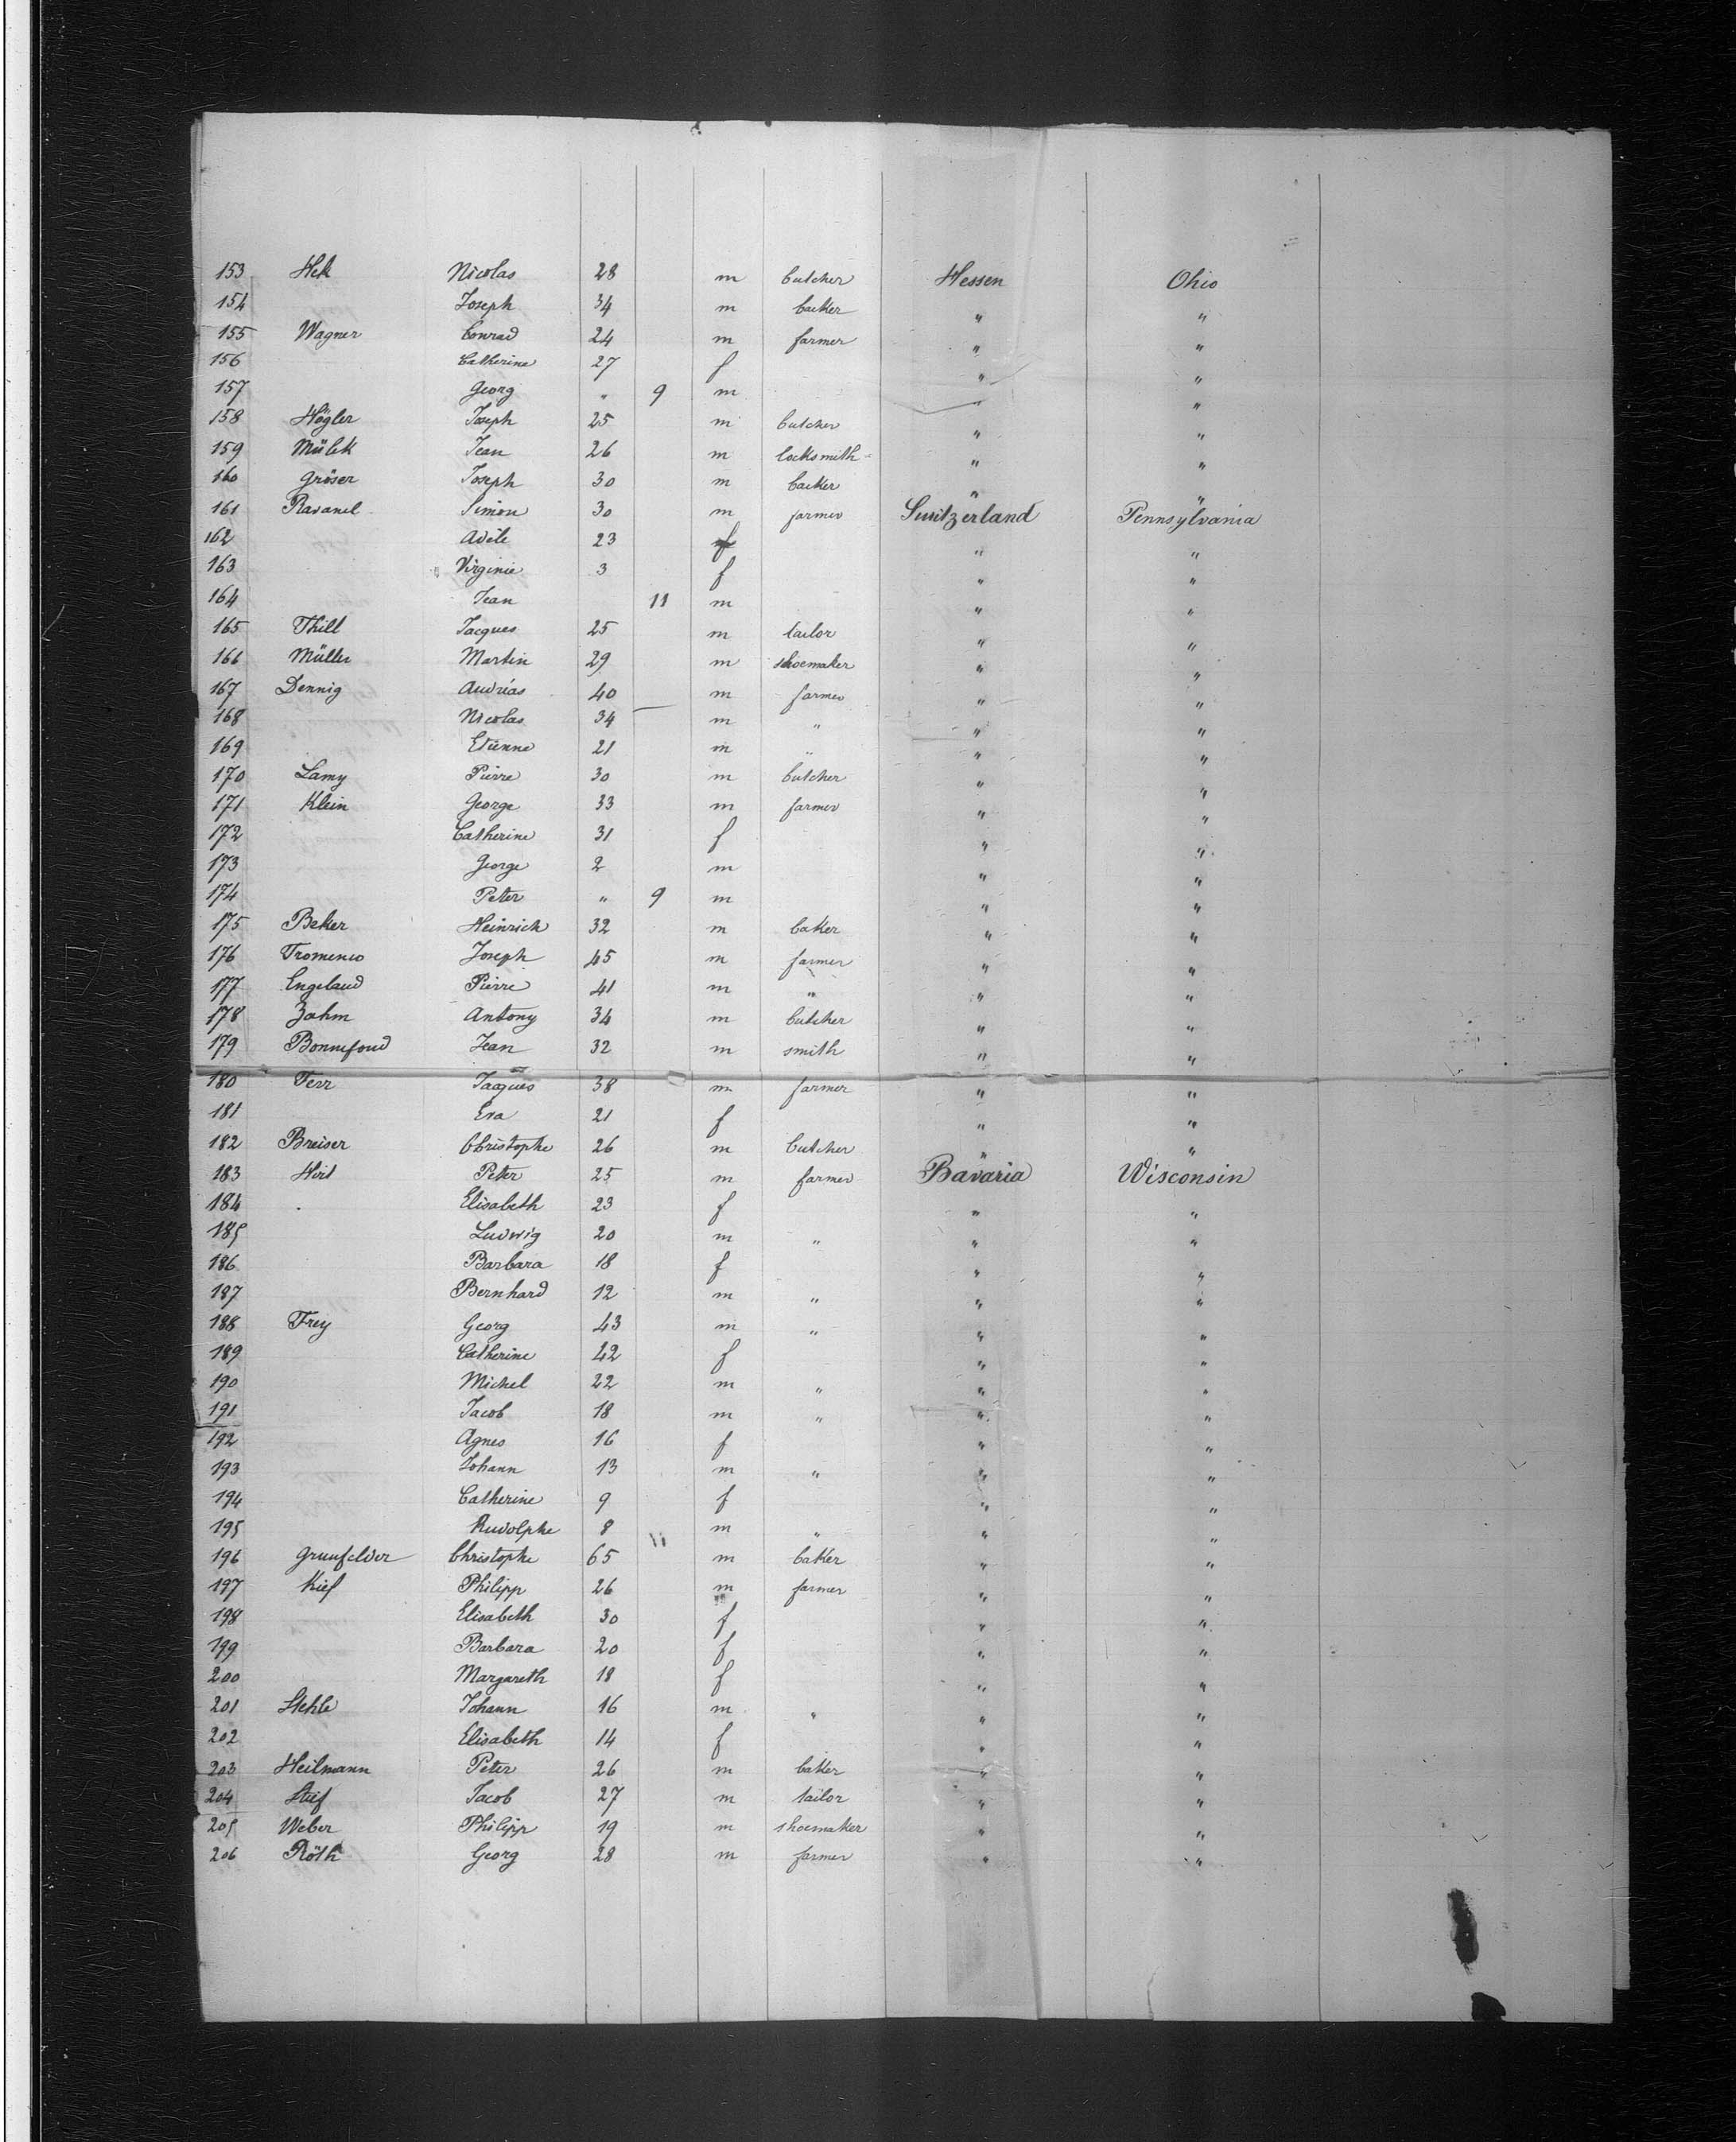 153 Hek Nicolas 28 m butcher Hessen Ohio
154 Joseph 34 m backer " "
155 Wagner Conrad 24 m farmer " "
156 Catherine 27 f " "
157 Georg " 9 m " "
158 Högler Joseph 25 m butcher " "
159 Mülek Jean 26 m locksmith " "
160 Gröser Joseph 30 m backer " "
161 Ravanel Simon 30 m farmer Switzerland Pennsylvania
162 Adèle 23 f " "
163 Virginie 3 f " "
164 Jean 11 m " "
165 Thill Jacques 25 m tailor " "
166 Müller Martin 29 m shoemaker " "
167 Dennig Andréas 40 m farmer " "
168 Nicolas 34 m " " "
169 Etienne 21 m " " "
170 Lamy Pierre 30 m butcher " "
171 Klein George 33 m farmer " "
172 Catherine 31 f " "
173 George 2 m " "
174 Peter " 9 m " "
175 Beker Heinrich 32 m baker " "
176 Joseph 45 m farmer " "
177 Engelaud Pierre 41 m " " "
178 Zahm Antony 34 m butcher " "
179 Bonnefond Jean 32 m smith " "
180 Ferr Jacques 38 m farmer " "
181 Eva 21 f " "
182 Breiser Christophe 26 m butcher " "
183 Peter 25 m farmer Bavaria Wisconsin
184 Elisabeth 23 f " "
185 Ludwig 20 m " " "
186 Barbara 18 f " "
187 Bernhard 12 m " " "
188 Frey Georg 43 m " " "
189 Catherine 42 f " "
190 Michel 22 m " " "
191 Jacob 18 m " " "
192 Agnes 16 f " "
193 Johann 13 m " " "
194 Catherine 9 f " "
195 Rudolphe 8 m " " "
196 Grunfelder Christophe 65 m baker " "
197 Kief Philipp 26 m farmer " "
198 Elisabeth 30 f " "
199 Barbara 20 f " "
200 Margareth 18 f " "
201 Stehle Johann 16 m " " "
202 Elisabeth 14 f " "
203 Heilmann Peter 26 m baker " "
204 Stief Jacob 27 m tailor " "
205 Weber Philipp 19 m shoemaker " "
206 Röth Georg 28 m farmer " "